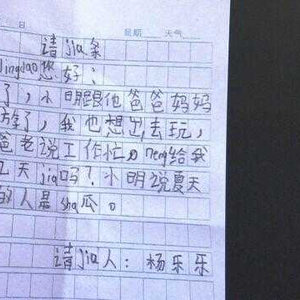 日 星期 天气
请jia条
lingdao您好：
了，小日月跟他爸爸妈妈
游了，我也想出去玩，
爸老说工作忙。neng给我
几天jia吗？小明说夏天
的人是sha瓜。
请jia人：杨乐乐